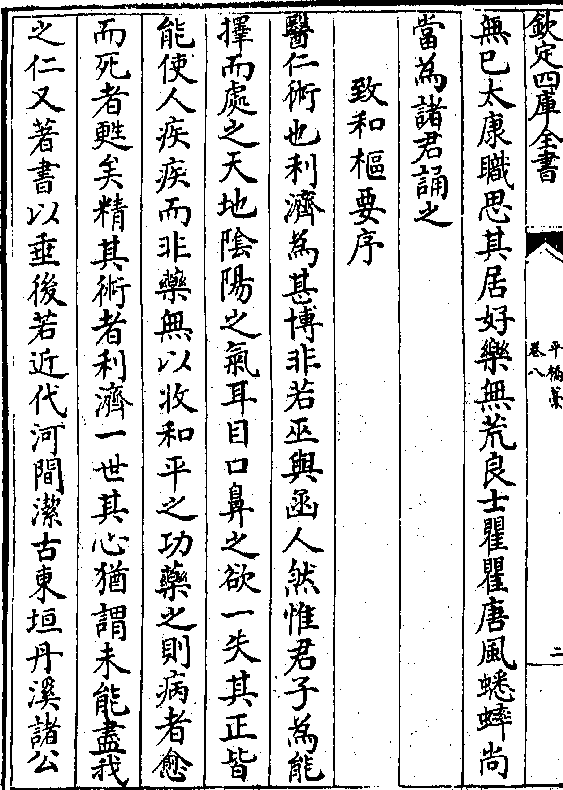 欽定四庫全書
平橋藁
卷八
二
無已太康職思其居好樂無荒良士瞿瞿唐風蟋蟀尚
當為諸君誦之
致和樞要序
醫仁術也利濟為甚博非若巫與函人然惟君子為能
擇而處之天地陰陽之氣耳目口鼻之欲一失其正皆
能使人疾疾而非藥無以收和平之功藥之則病者愈
而死者甦矣精其術者利濟一世其心猶謂未能盡我
之仁又著書以垂後若近代河間潔古東垣丹溪諸公